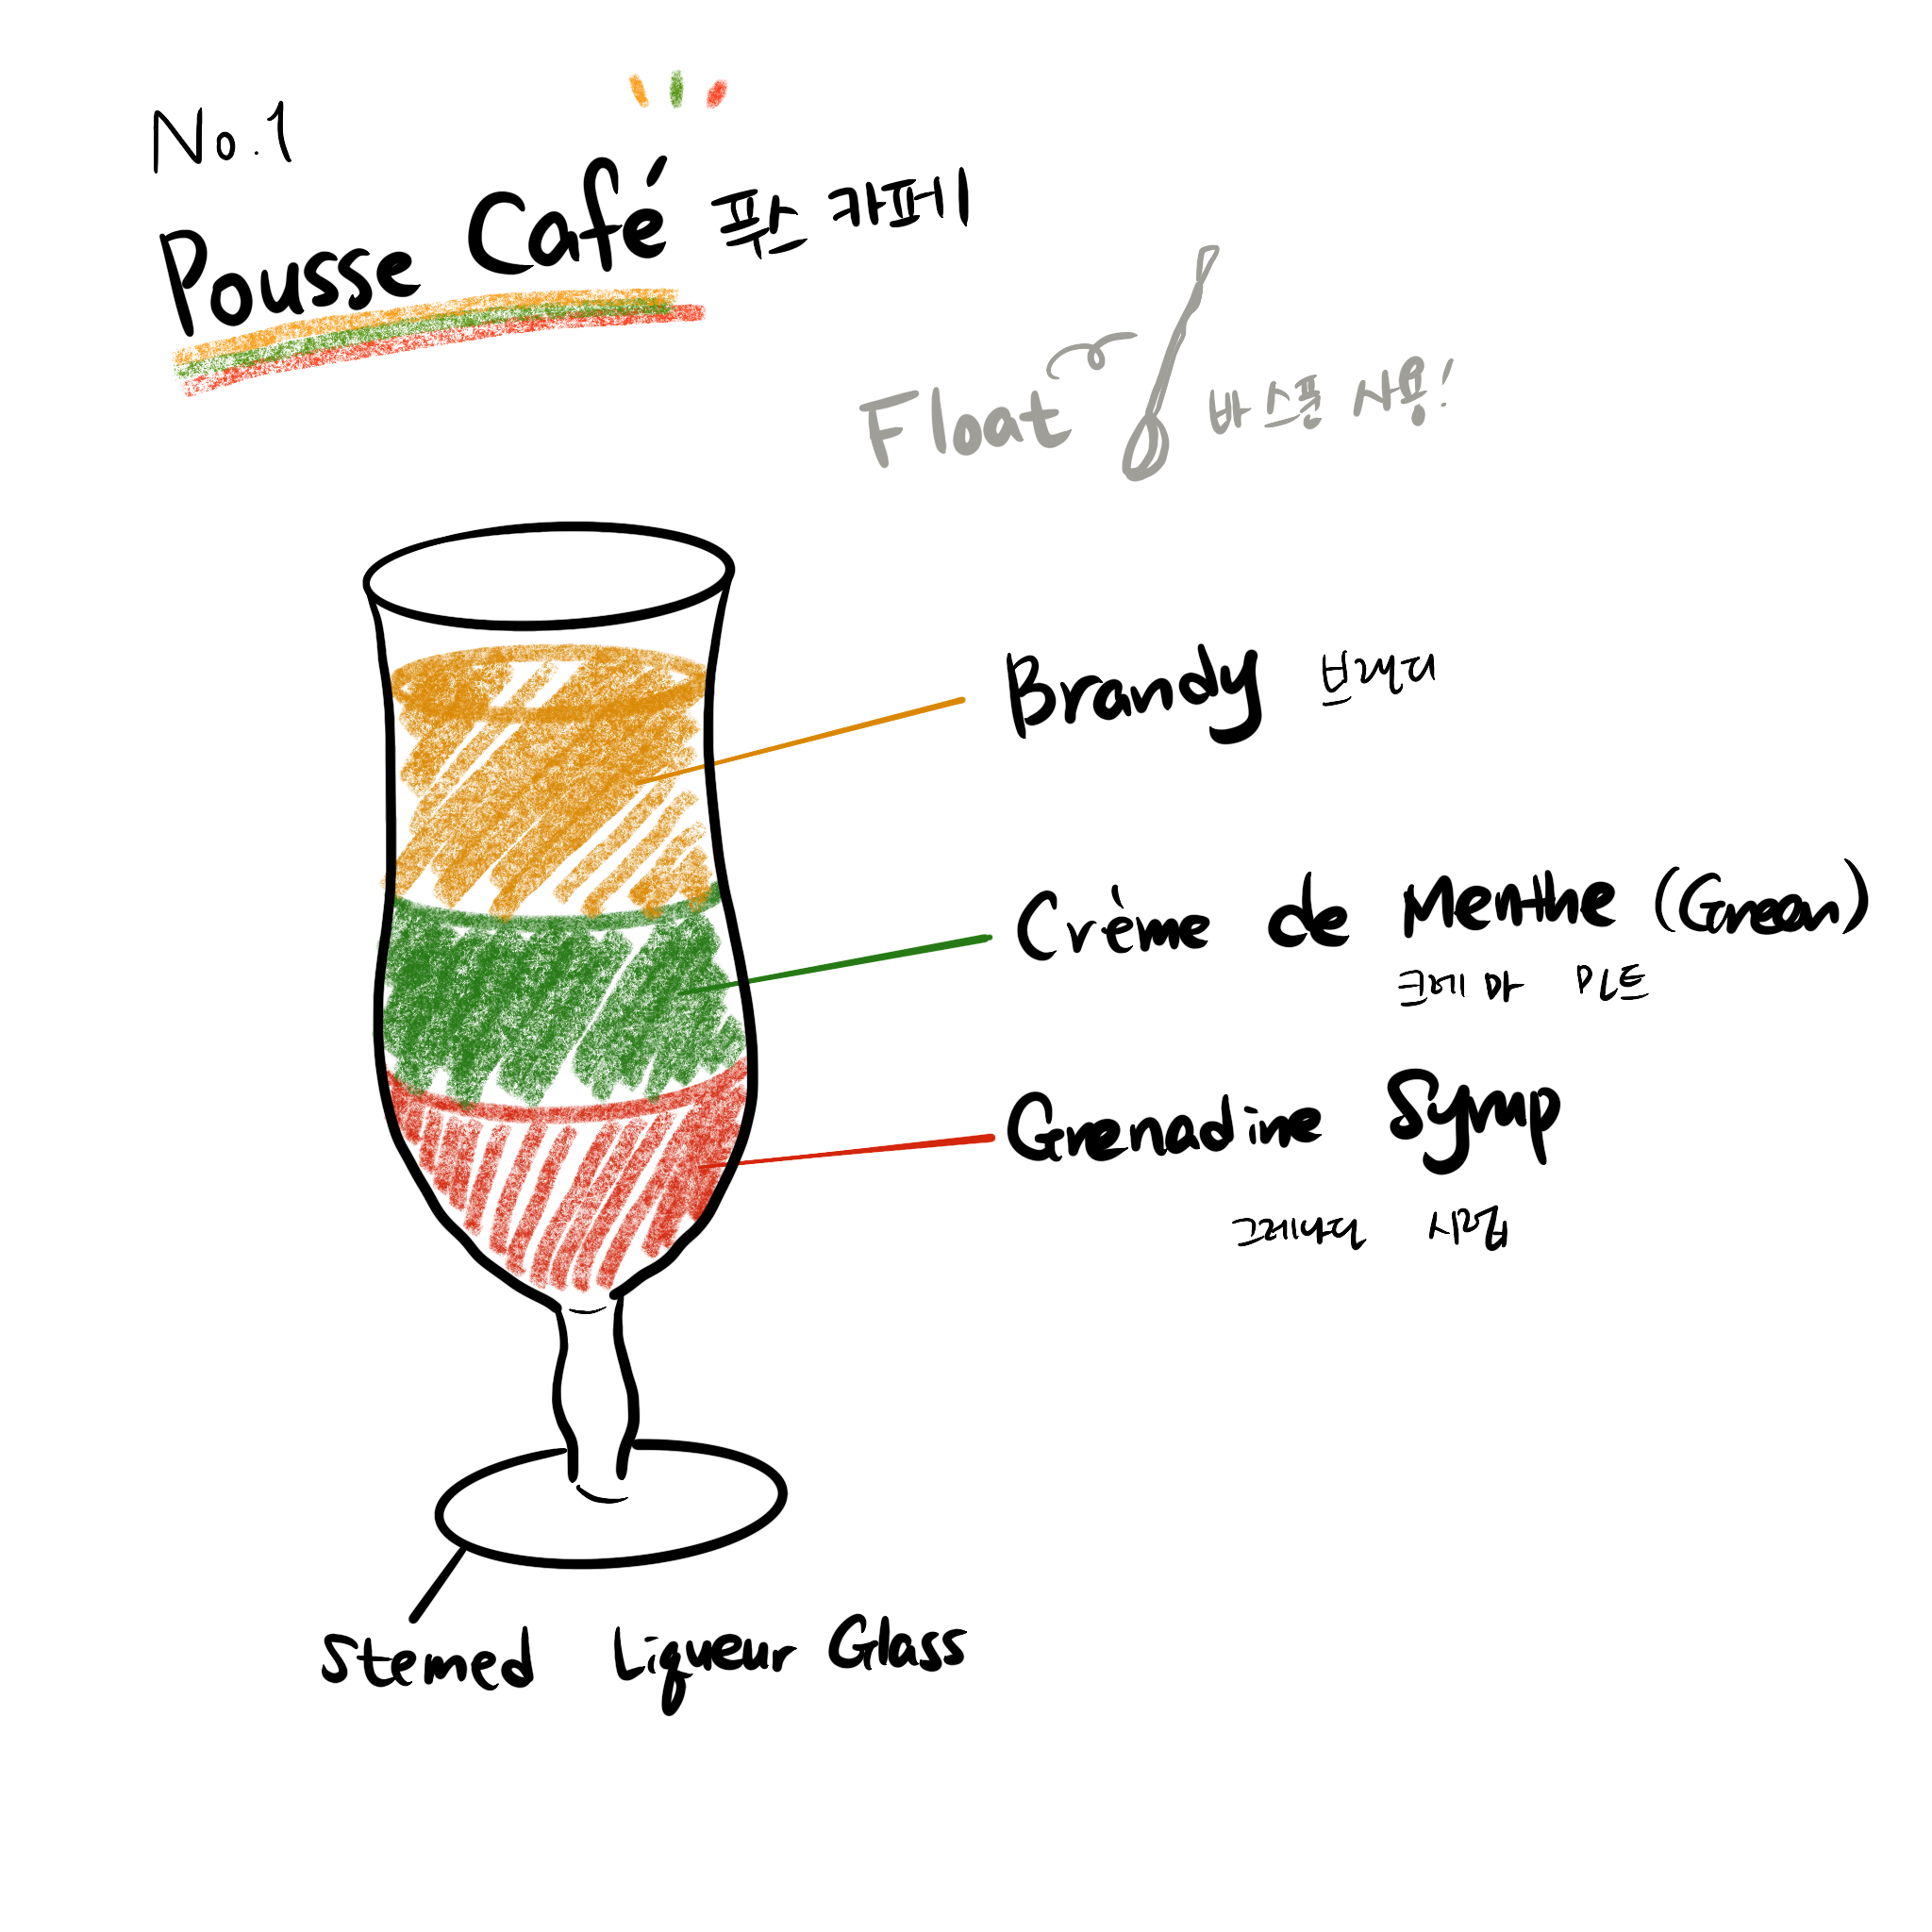 No.1
Pousse Café 푸스 카페
Float 바 스푼 사용!
Brandy 브랜디
Crème de Menthe (Green)
크레마 민트
Grenadine Syrup
그레나딘 시럽
Stemed Liqueur Glass